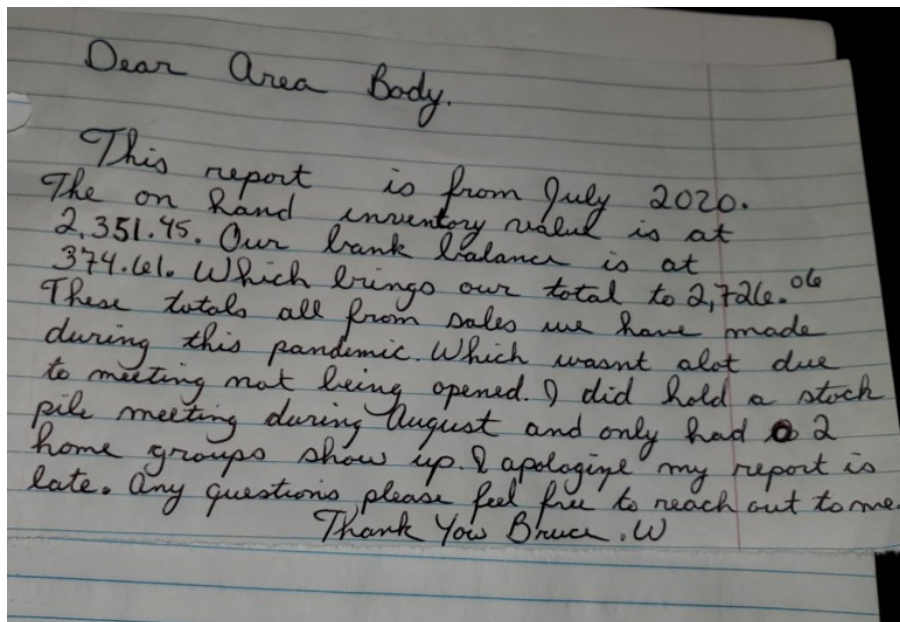 Dear Area Body.
This report is from July 2020.
The on hand inventory value is at
2,351.45. Our bank balance is at
374.61. Which brings our total to 2,726.06
These totals all from sales we have made
during this pandemic. Which wasnt alot due
to meeting not being opened. I did hold a stock
pile meeting during August and only had 2
home groups show up. I apologize my report is
late. Any questions please feel free to reach out to me.
Thank You Bruce .W